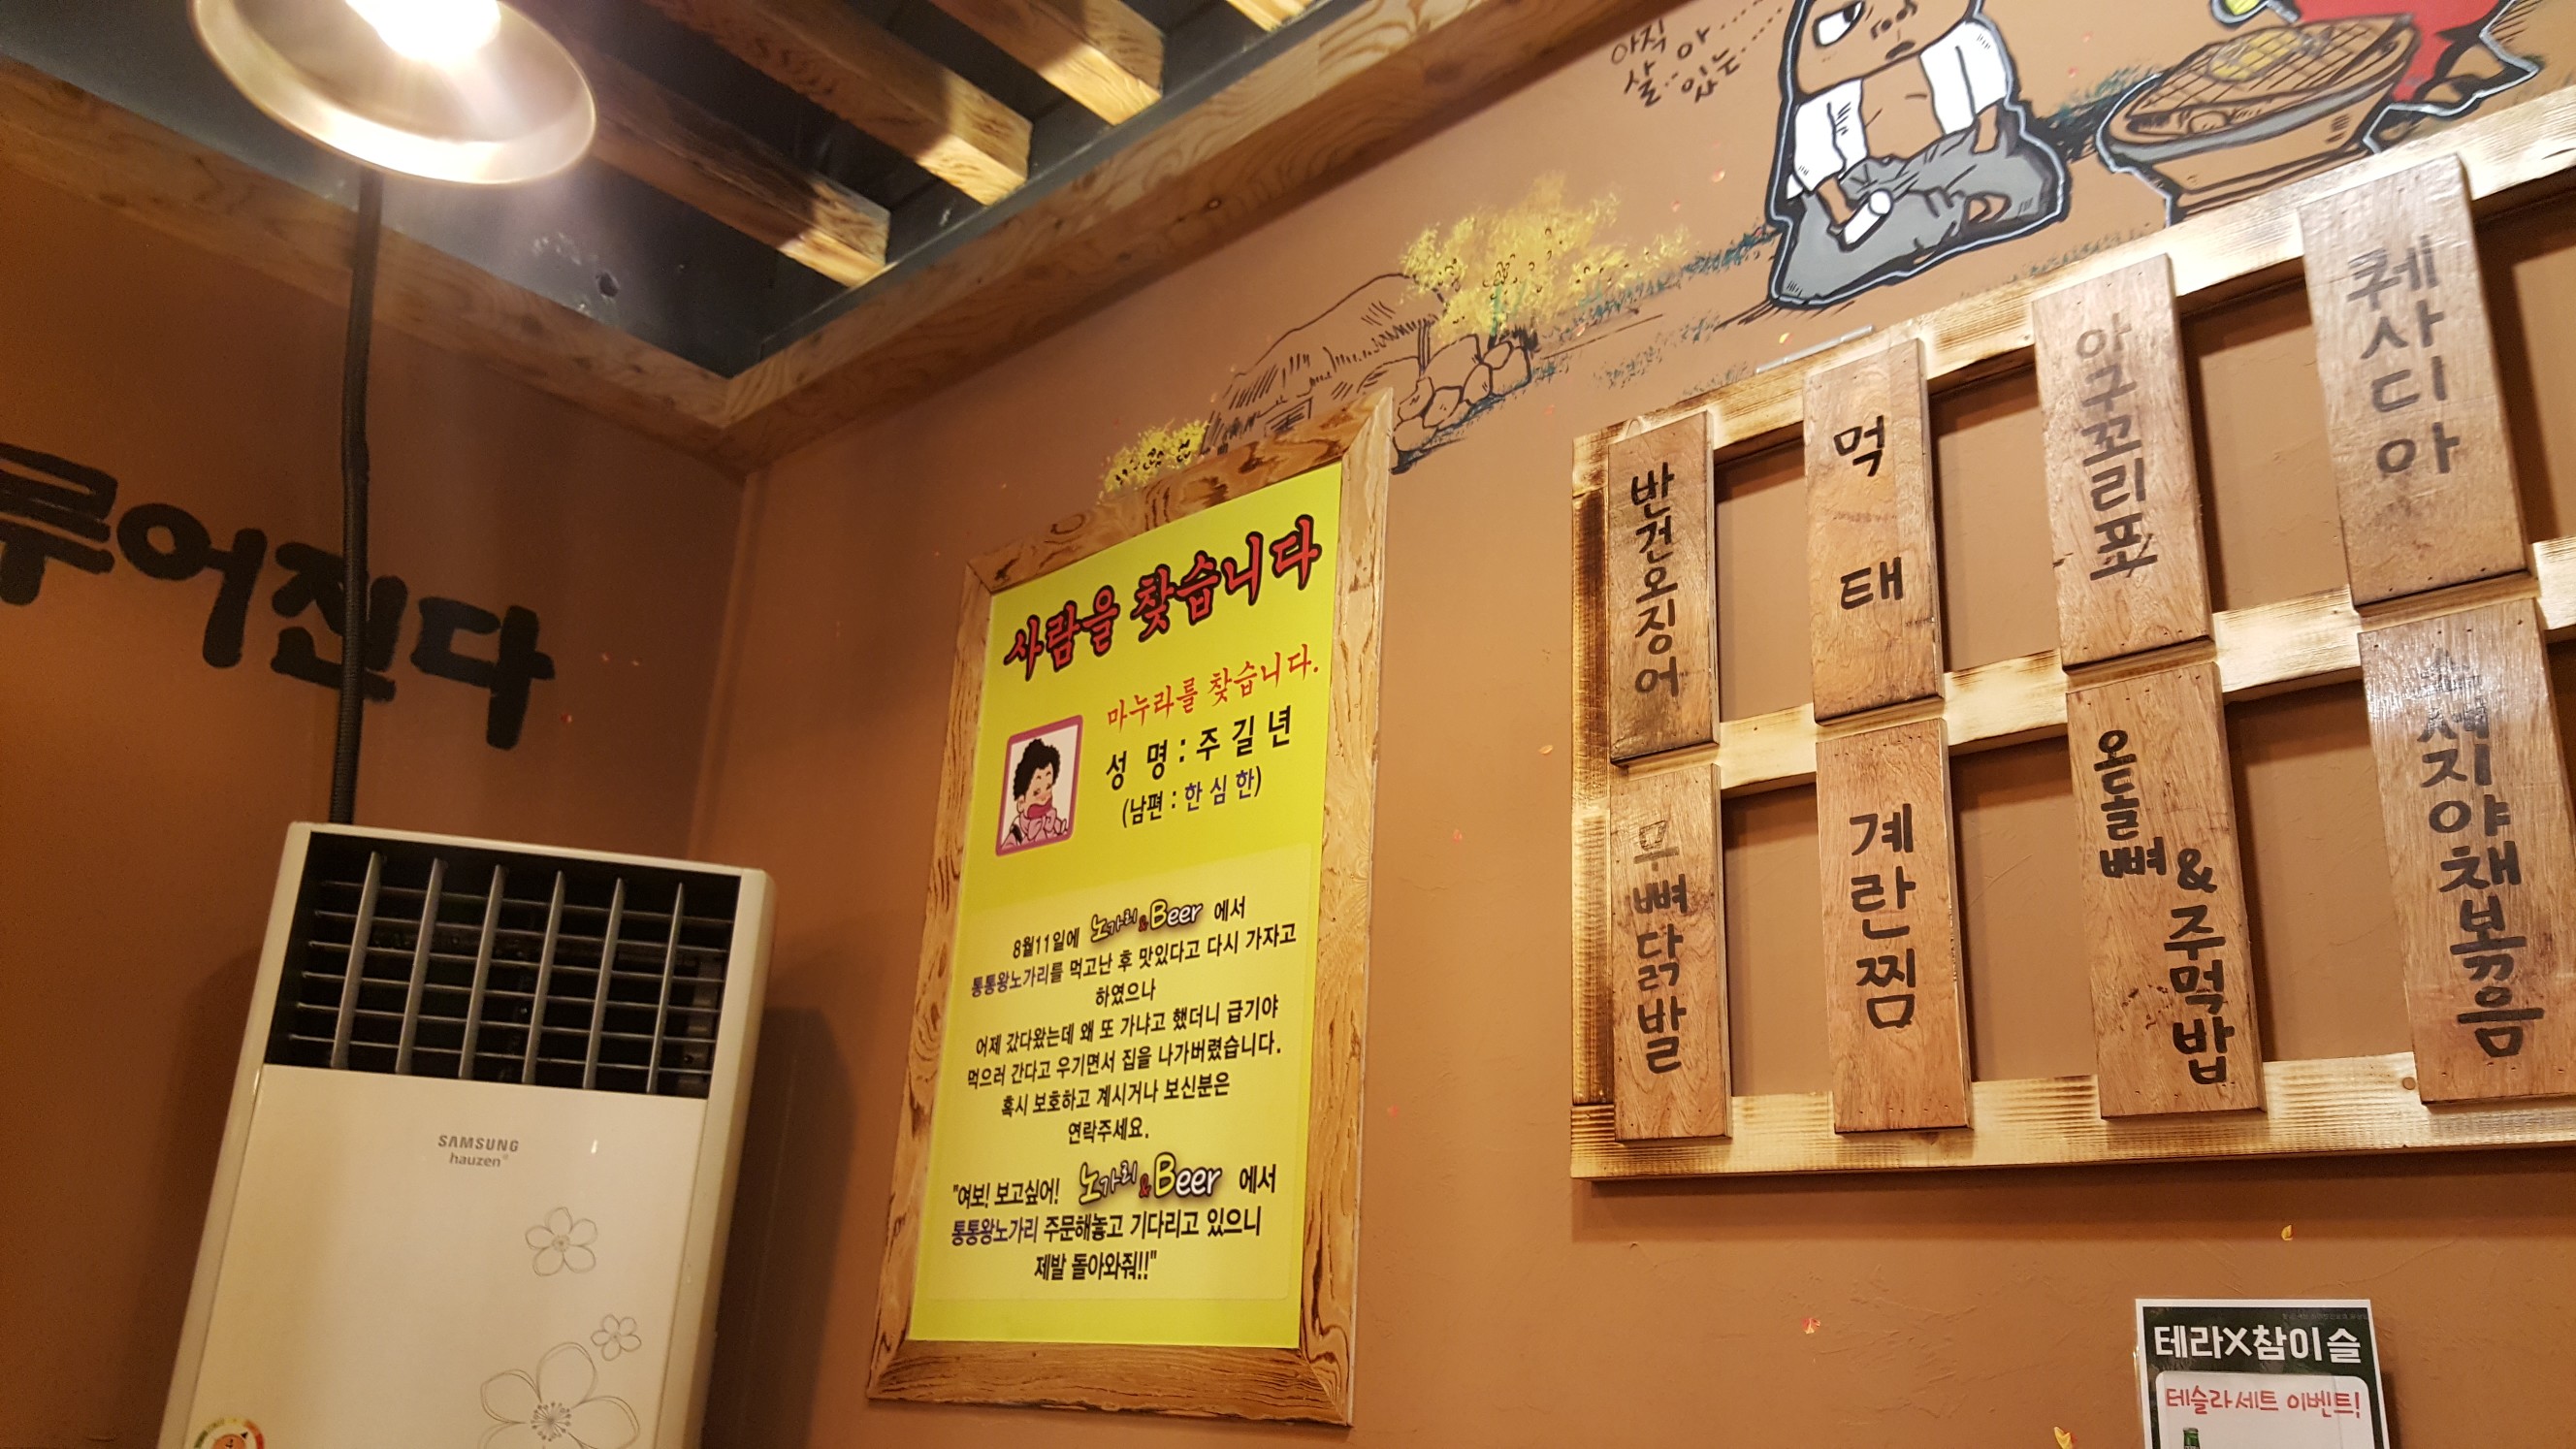 아직
살..아.....
있는.....
루어진다
SAMSUNG
hauzen
사람을 찾습니다
마누라를 찾습니다.
성 명 : 주 길 년
(남편 : 한 심 한)
8월11일에 노가리&Beer 에서
통통왕노가리를 먹고난 후 맛있다고 다시 가자고
하였으나
어제 갔다왔는데 왜 또 가냐고 했더니 급기야
먹으러 간다고 우기면서 집을 나가버렸습니다.
혹시 보호하고 계시거나 보신분은
연락주세요.
"여보! 보고싶어! 노가리&Beer 에서
통통왕노가리 주문해놓고 기다리고 있으니
제발 돌아와줘!!"
반건오징어
먹태
아구꼬리포
퀘사디아
무뼈닭발
계란찜
오돌뼈&주먹밥
소세지야채볶음
테라X참이슬
테슬라세트 이벤트!